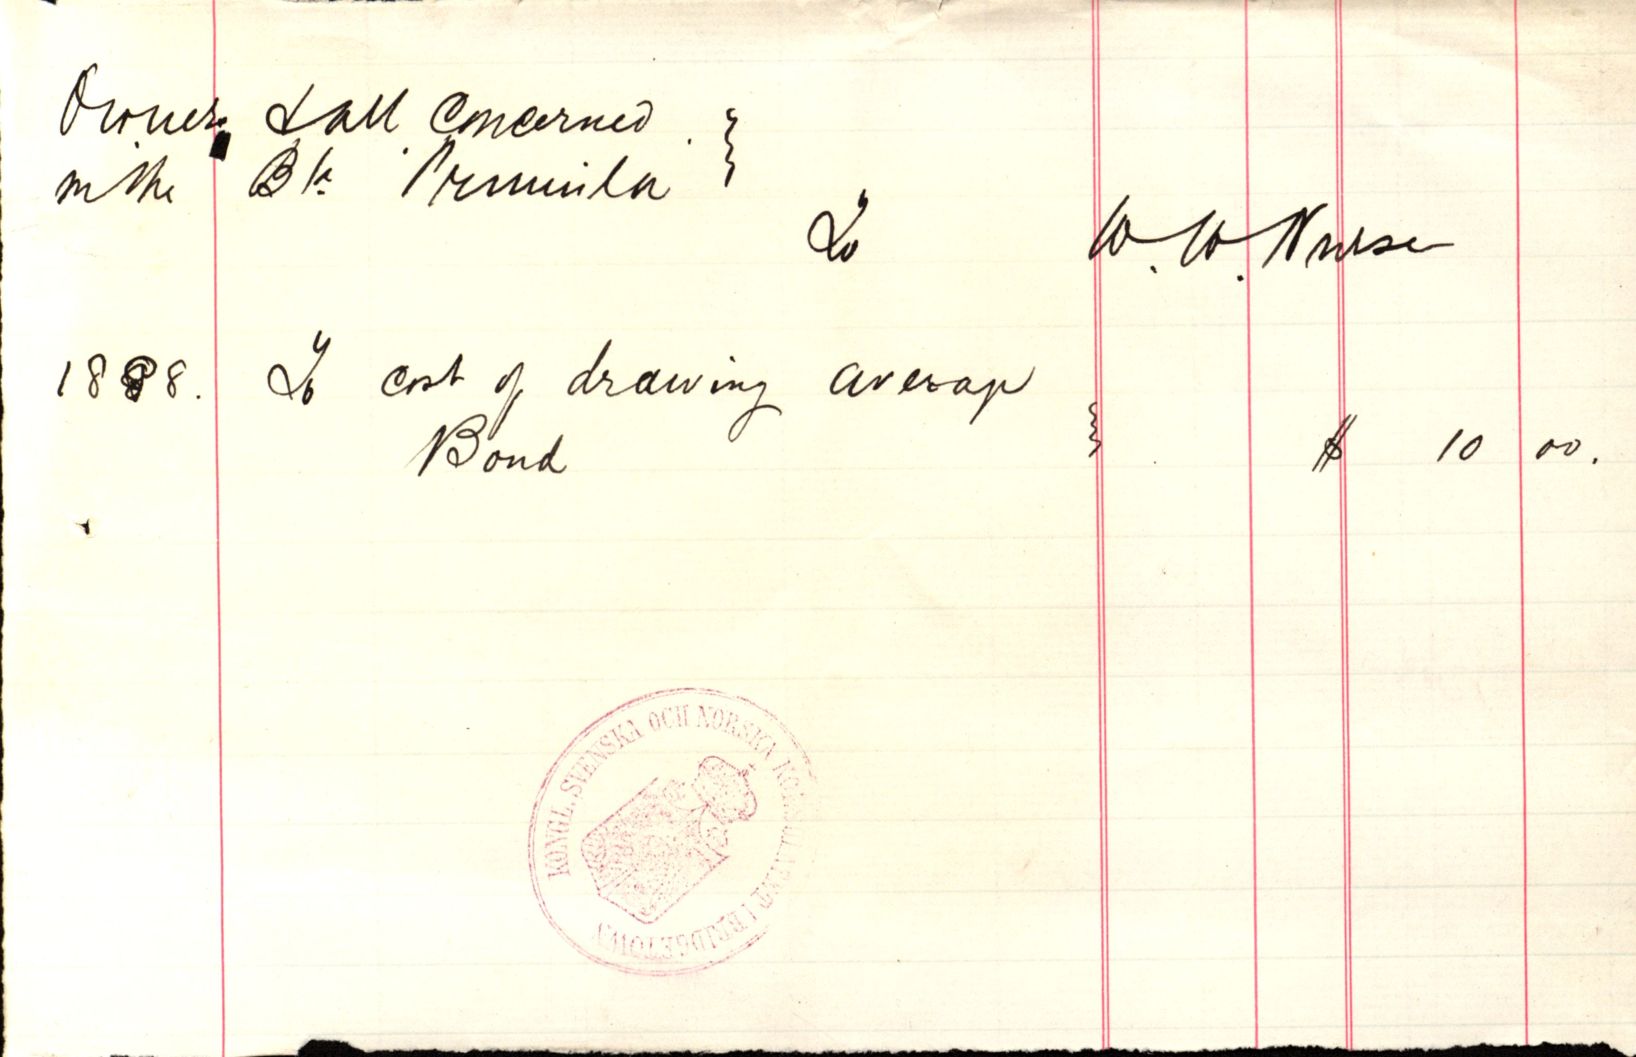 Owners & all concerned
in the Bk. Primula
To W. W. Nurse
1888. To cost of drawing average
Bond $ 10 00.
KONGL. SVENSKA OCH NORSKA KONSULATET I BRIDGETOWN